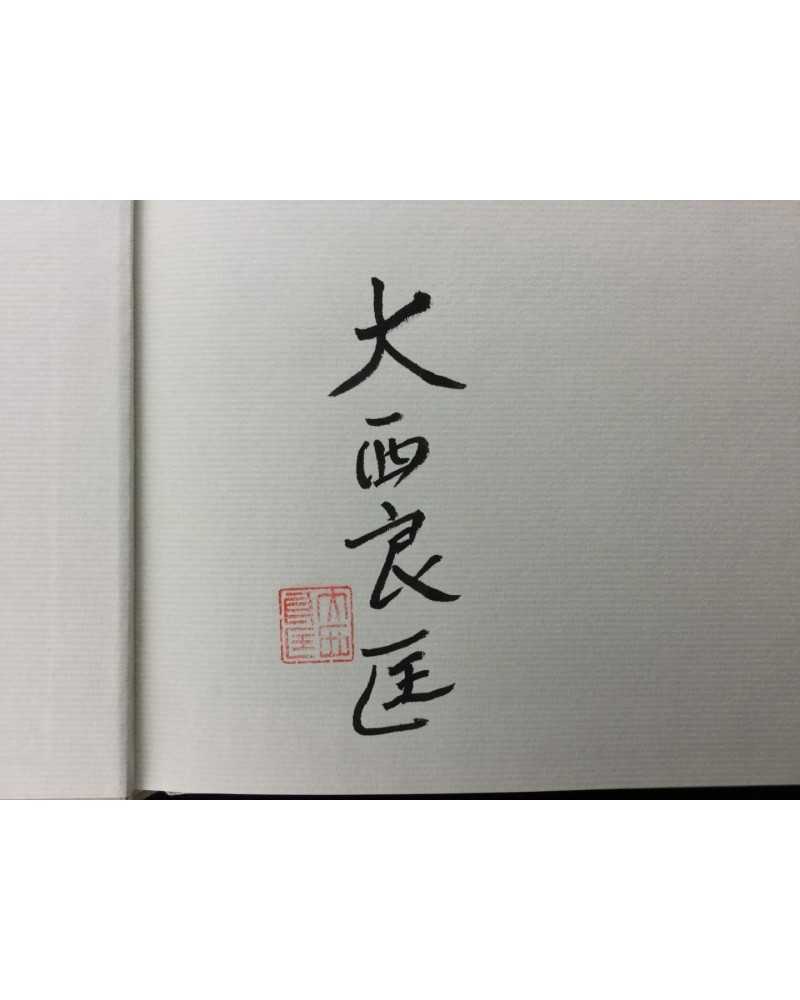 大西良匡
大西
良匡